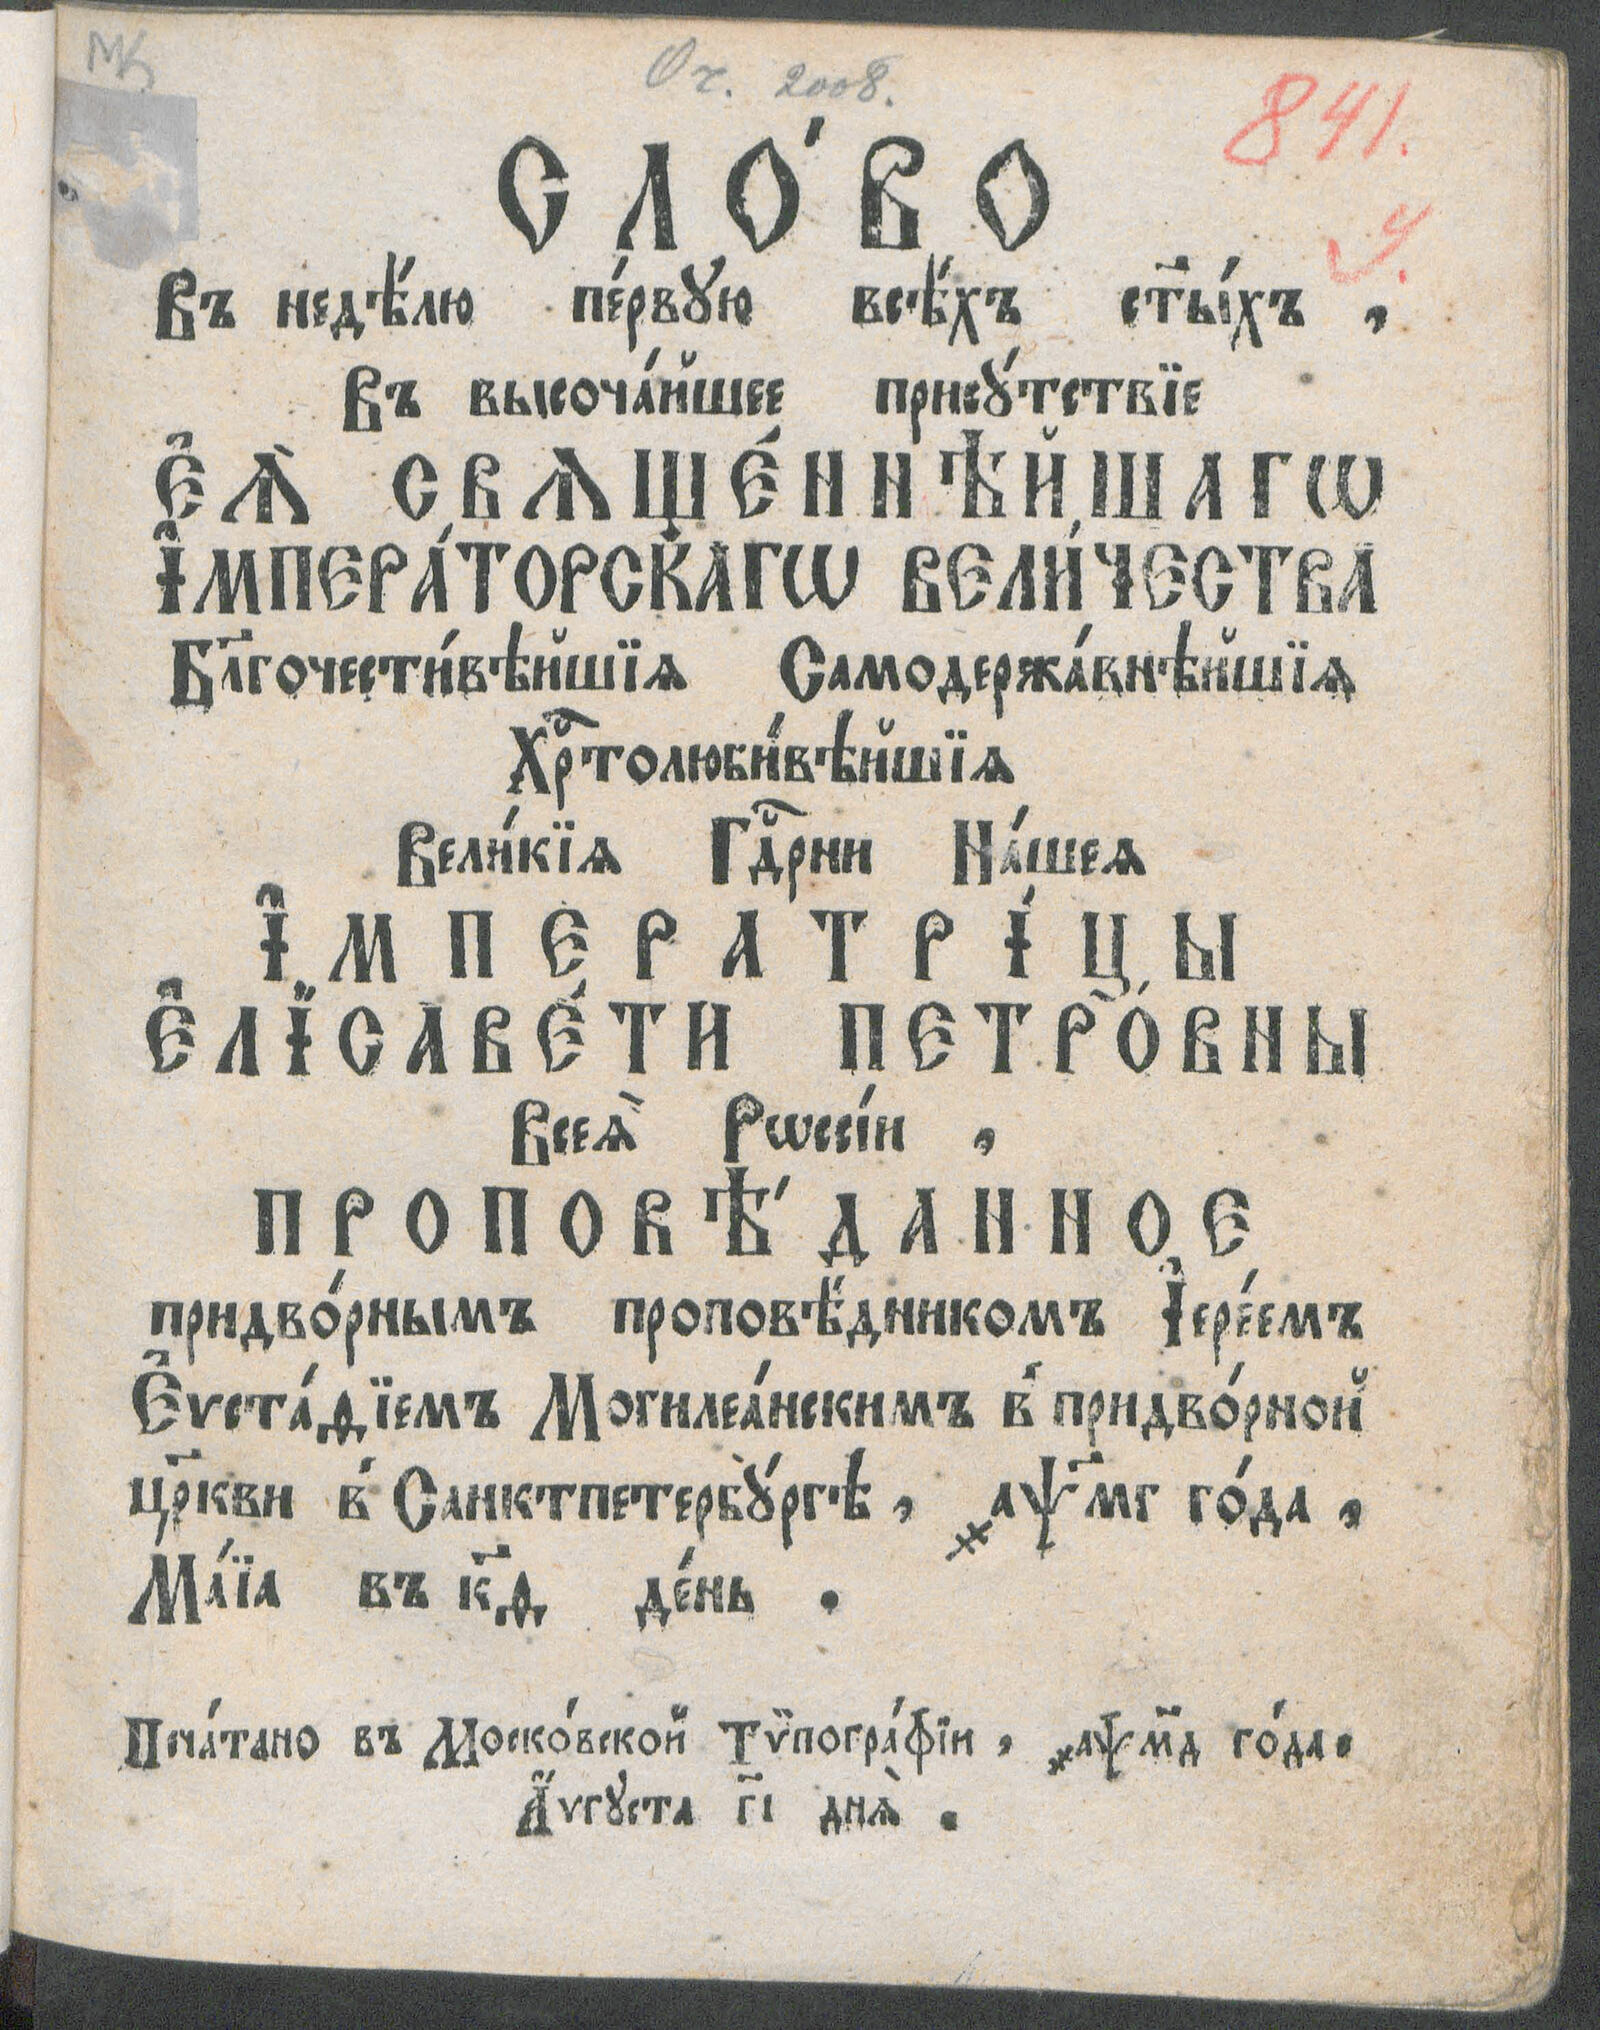 Оч. 2008.
841.
СЛО́ВО
Въ недѣ́лю пе́рвꙋю всѣ́хъ ст҃ы́хъ ,
Въ высоча́йшее присꙋ́тствїе
Є҆Ѧ̀ СВѦЩЕ́ННѢЙШАГѠ
І҆МПЕРА́ТОРСКАГѠ ВЕЛИ́ЧЕСТВА
Бл҃гочести́вѣйшїѧ Самодержа́внѣйшїѧ
Хрⷭ҇толюби́вѣйшїѧ
Вели́кїѧ Гдⷭ҇рни На́шеѧ
І҆МПЕРАТРІ́ЦЫ
Є҆ЛІСАВЕ́ТИ ПЕТРО́ВНЫ
Всеѧ̀ Рѡссі́и ,
ПРОПОВѢ́ДАННОЕ
придво́рнымъ проповѣ́дникомъ І҆ере́емъ
Є҆ѵста́ѳїемъ Могилеа́нскимъ в̾ придво́рной
цр҃кви в̾ Санктпетербꙋ́ргѣ , ҂аѱ҃мг го́да ,
Ма́їа въ к҃д де́нь .
Печа́тано въ Моско́вской Тѷпогра́фїи , ҂аѱм҃д го́да .
А҆́ѵгꙋста г҃і днѧ̀ .